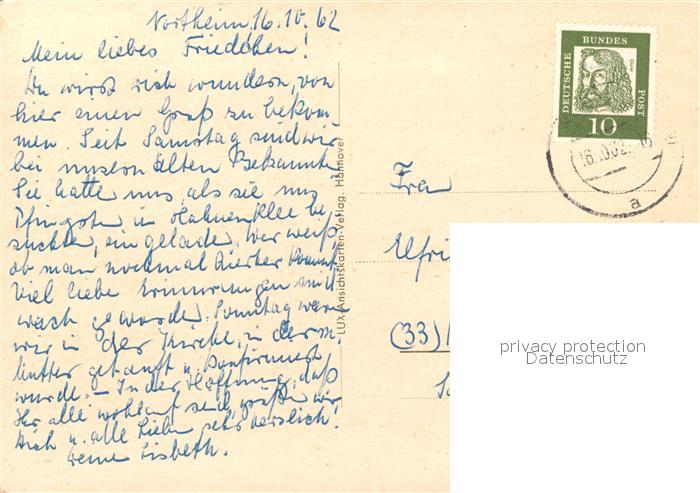 Northeim, 16.10.62
Mein liebes Friedchen!
Du wirst dich wundern, von
hier einen Gruß zu bekom-
men. Seit Samstag sind wir
bei unseren alten Bekannten
Sie hatte uns, als sie uns
Pfingsten in Hahnenklee be
suchte, eingelade. Wer weiß,
ob man nochmal hierher kommt.
Viel liebe Erinnerungen sind
wach geworde. Sonntag waren
wir in der Kirche, in der m.
Mutter getauft u. konfirmiert
wurde. – In der Hoffnung, daß
Ihr alle wohlauf seid, grüße wir
Dich u. alle Lieben sehr herzlich!
Deine Lisbeth.
LUX Ansichtskarten-Verlag, Hannover
DEUTSCHE BUNDES POST
Dürer
10
a
Frau
Elfri
(33)
privacy protection
Datenschutz